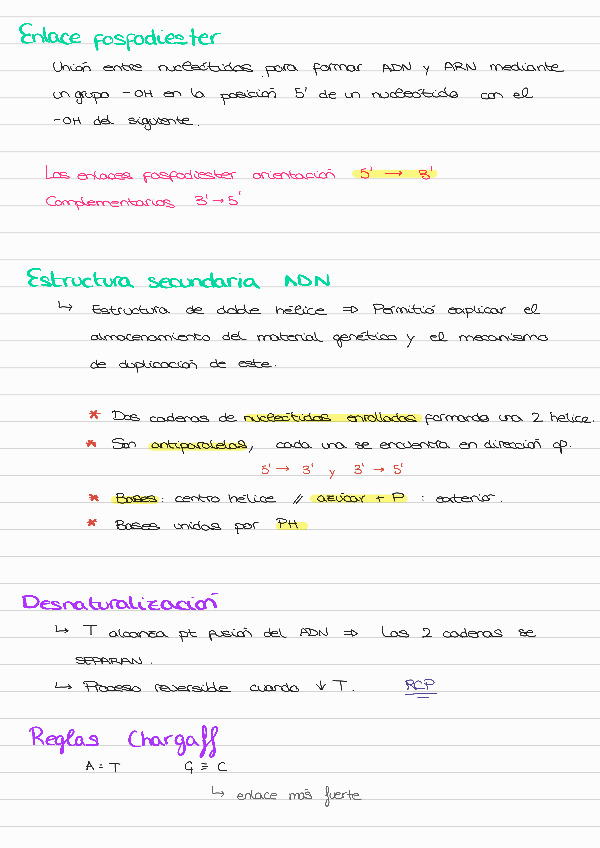 Enlace fosfodiester
Unión entre nucleótidos para formar ADN y ARN mediante
un grupo -OH en la posición 5' de un nucleótido con el
-OH del siguiente.
Los enlaces fosfodiester orientación 5' → 3'
Complementarios 3' → 5'
Estructura secundaria ADN
↳ Estructura de doble hélice ⇒ Permitió explicar el
almacenamiento del material genético y el mecanismo
de duplicación de este.
* Dos cadenas de nucleótidos enrolladas formando una 2 hélice.
* Son antiparalelas, cada una se encuentra en dirección op.
5' → 3' y 3' → 5'
* Bases: centro hélice // azúcar + P : exterior.
* Bases unidas por PH
Desnaturalización
↳ T alcanza pt fusión del ADN ⇒ Las 2 cadenas se
SEPARAN.
↳ Proceso reversible cuando ↓ T. RCP
Reglas Chargaff
A = T G ≡ C
↳ enlace más fuerte